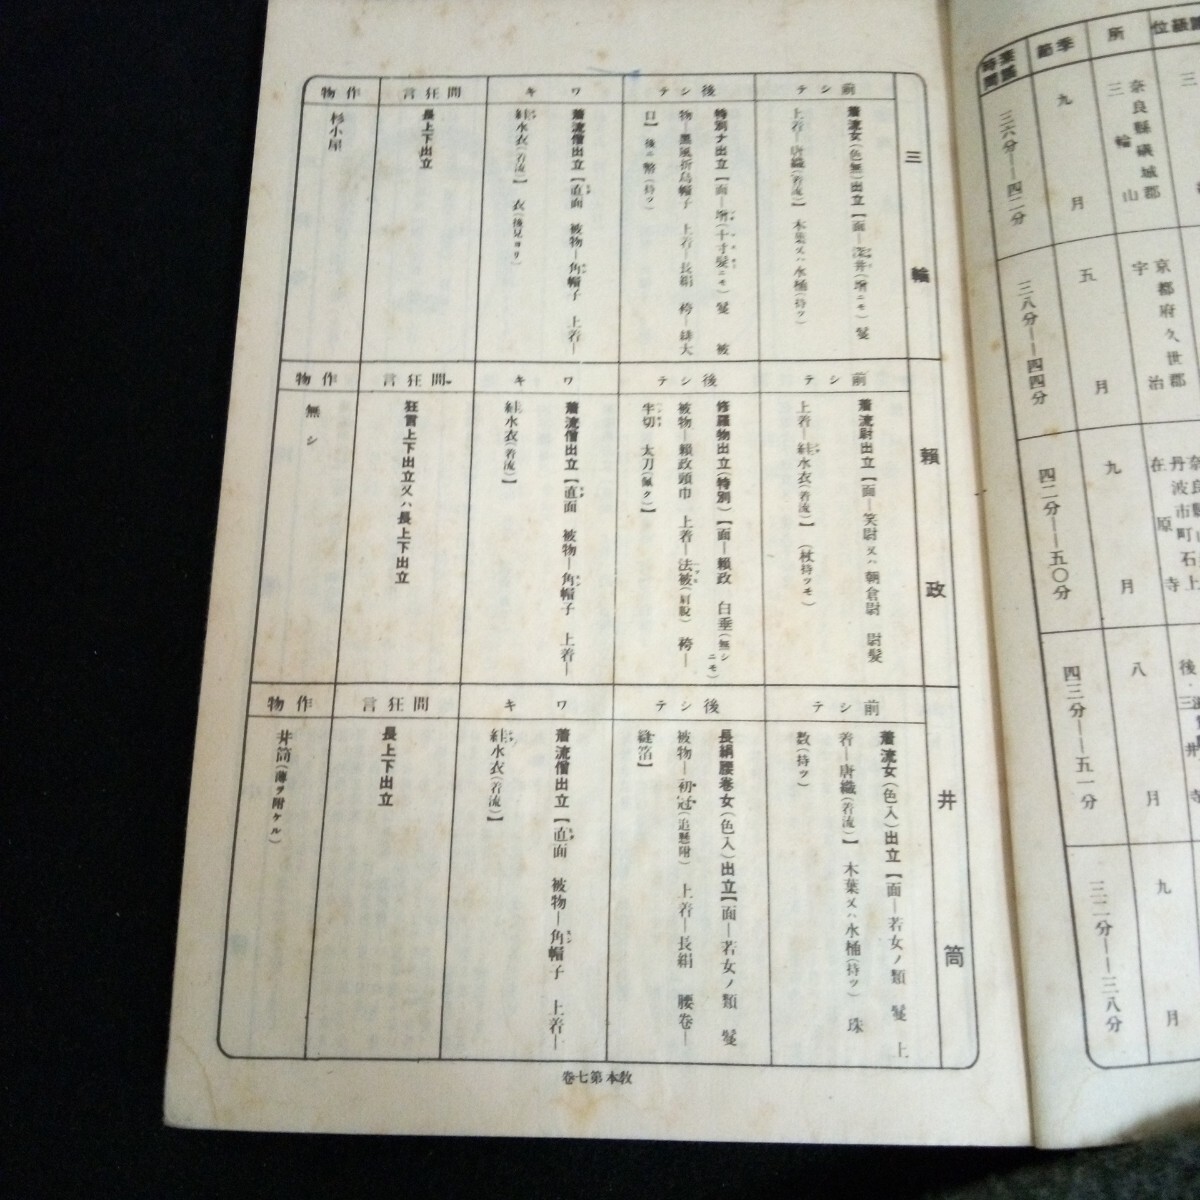 季節
所
位級
九月
奈良縣磯城郡
三輪山
三六分―四二分
五月
京都府久世郡
宇治
三八分―四四分
九月
丹波市町石上
在原寺
四二分―五〇分
八月
三井寺
四三分―五一分
九月
三二分―三八分
三輪
前シテ
着流女(色無)出立【面―深井(増ニモ) 鬘
上着―唐織(着流)】 木葉又ハ水桶(持ツ)
後シテ
特別ナ出立【面―増(十寸髮ニモ) 鬘 被
物―黒風折烏帽子 上着―長絹 袴―緋大
口】 後ニ幣(持ツ)
ワキ
着流僧出立【直面 被物―角帽子 上着―
絓水衣(着流)】 衣(後見ヨリ)
間狂言
長上下出立
作物
杉小屋
頼政
前シテ
着流尉出立【面―笑尉又ハ朝倉尉 尉髮
上着―絓水衣(着流)】 (杖持ツモ)
後シテ
修羅物出立(特別)【面―頼政 白垂(無シニモ)
被物―頼政頭巾 上着―法被(肩脱) 袴―
半切 太刀(佩ク)】
ワキ
着流僧出立【直面 被物―角帽子 上着―
絓水衣(着流)】
間狂言
狂言上下出立又ハ長上下出立
作物
無シ
井筒
前シテ
着流女(色入)出立【面―若女ノ類 鬘 上
着―唐織(着流)】 木葉又ハ水桶(持ツ) 珠
数(持ツ)
後シテ
長絹腰巻女(色入)出立【面―若女ノ類 鬘
被物―初冠(追懸附) 上着―長絹 腰巻―
縫箔】
ワキ
着流僧出立【直面 被物―角帽子 上着―
絓水衣(着流)】
間狂言
長上下出立
作物
井筒(薄ヲ附ケル)
教本第七巻